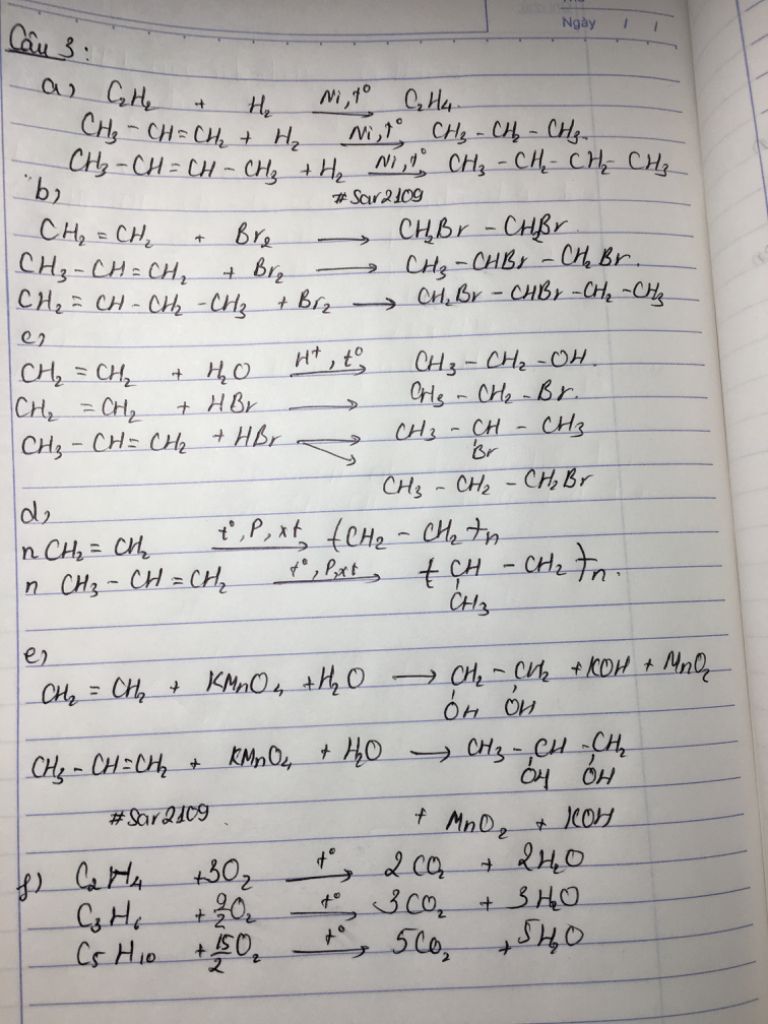 Ngày / /
Câu 3:
a) C2H2 + H2 Ni,t° → C2H4.
CH3 – CH=CH2 + H2 Ni,t° → CH3 – CH2 – CH3.
CH3 – CH = CH – CH3 + H2 Ni,t° → CH3 – CH2 – CH2 – CH3
b) #Sar2109
CH2 = CH2 + Br2 → CH2Br – CH2Br
CH3 – CH=CH2 + Br2 → CH3 – CHBr – CH2Br.
CH2 = CH – CH2 – CH3 + Br2 → CH2Br – CHBr – CH2 – CH3
c)
CH2 = CH2 + H2O H+, t° → CH3 – CH2 – OH.
CH2 = CH2 + HBr → CH3 – CH2 – Br.
CH3 – CH= CH2 + HBr → CH3 – CH – CH3
Br
CH3 – CH2 – CH2Br
d)
nCH2 = CH2 t°, P, xt → (CH2 – CH2)n
n CH3 – CH = CH2 t°, P,xt → (CH – CH2)n.
CH3
e)
CH2 = CH2 + KMnO4 + H2O → CH2 – CH2 + KOH + MnO2
OH OH
CH3 – CH=CH2 + KMnO4 + H2O → CH3 – CH – CH2
OH OH
#Sar2109 + MnO2 + KOH
f) C2H4 + 3O2 t° → 2CO2 + 2H2O
C3H6 + 9/2O2 t° → 3CO2 + 3H2O
C5H10 + 15/2O2 t° → 5CO2 + 5H2O